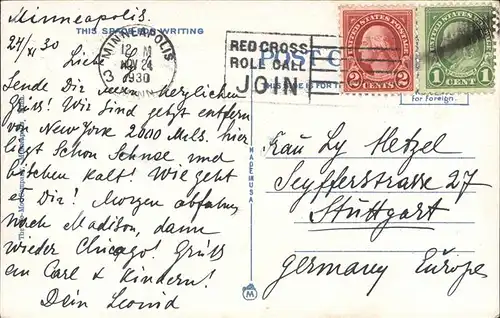 Minneapolis.
THIS SPACE FOR WRITING
24/XI 30 Liebe
MINNEAPOLIS
12 M
NOV 24
1930
MINN.
RED CROSS
ROLL CALL
JOIN
POST C
UNITED STATES POSTAGE
2 CENTS 2
UNITED STATES POSTAGE
1 CENT 1
for Foreign.
Sende Dir herzlichen
Grüss! Wir sind jetzt entfernt
von New York 2000 Mls. hier
liegt Schon Schnee und
bitchen Kalt! Wie geht
es Dir! Morgen abfahren
nach Madison, dann
wieder Chicago! Grüss
an Carl & Kindern!
Dein Leonid
MADE IN U.S.A.
Frau Ly Hetzel
Seyfferstrasse 27
Stuttgart
Germany Europe